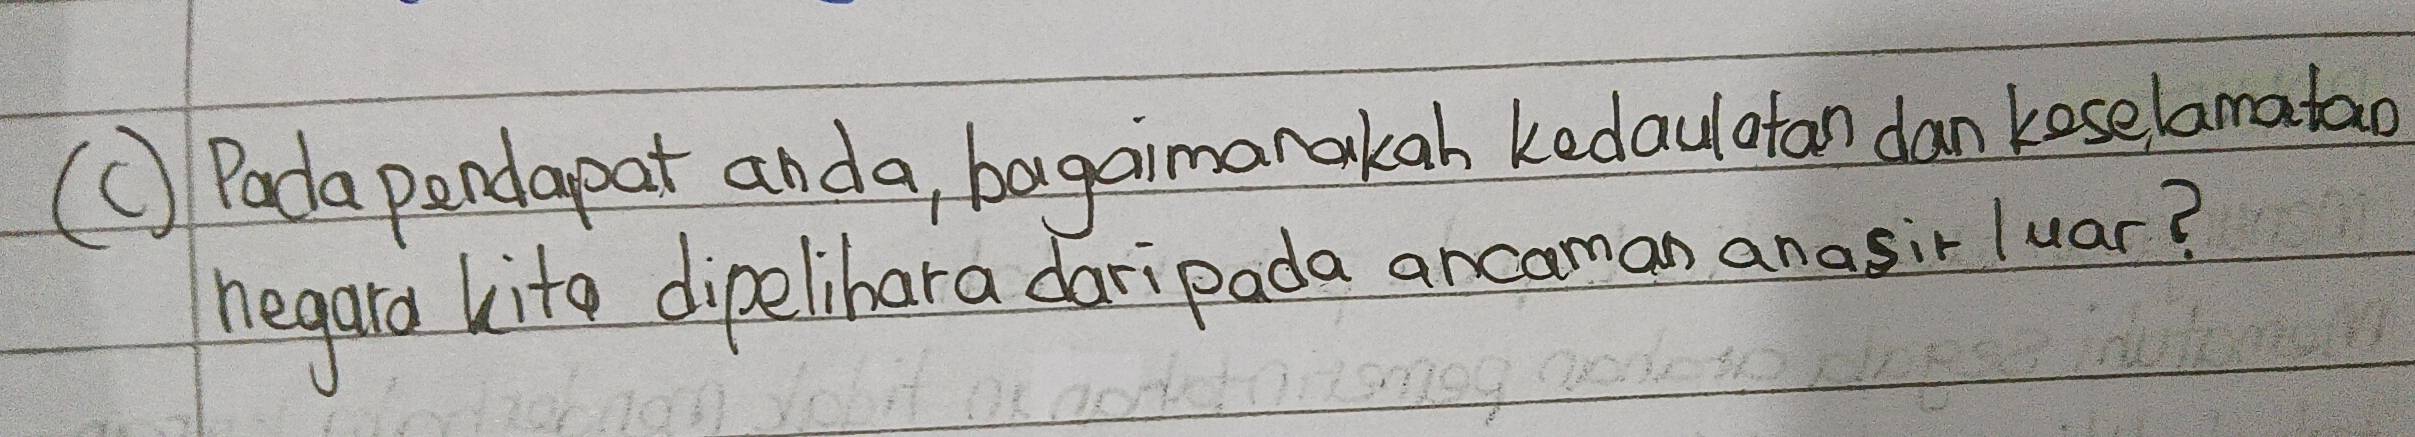 (C) Pada pendapat anda, bagaimanakah kedaulatan dan keselamatan
negara kita dipelihara daripada ancaman anasir luar?